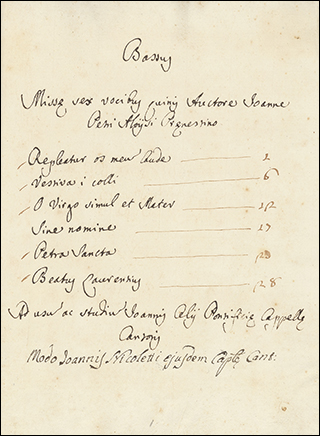 Bassus
Missę sex vocibus quinis Auctore Joanne
Petri Aloysi Prenestino
Repleatur os meu laude 1
Vestiva i colli 6
O Virgo simul et Mater 12
Sine nomine 17
Petra Sancta 23
Beatus Laurentius 28
Ad usu ac studiu Joannis Celij Pontificię Cappellę
Cantoris
Modo Joannis Nicoletti ejusdem Caplę Cant: